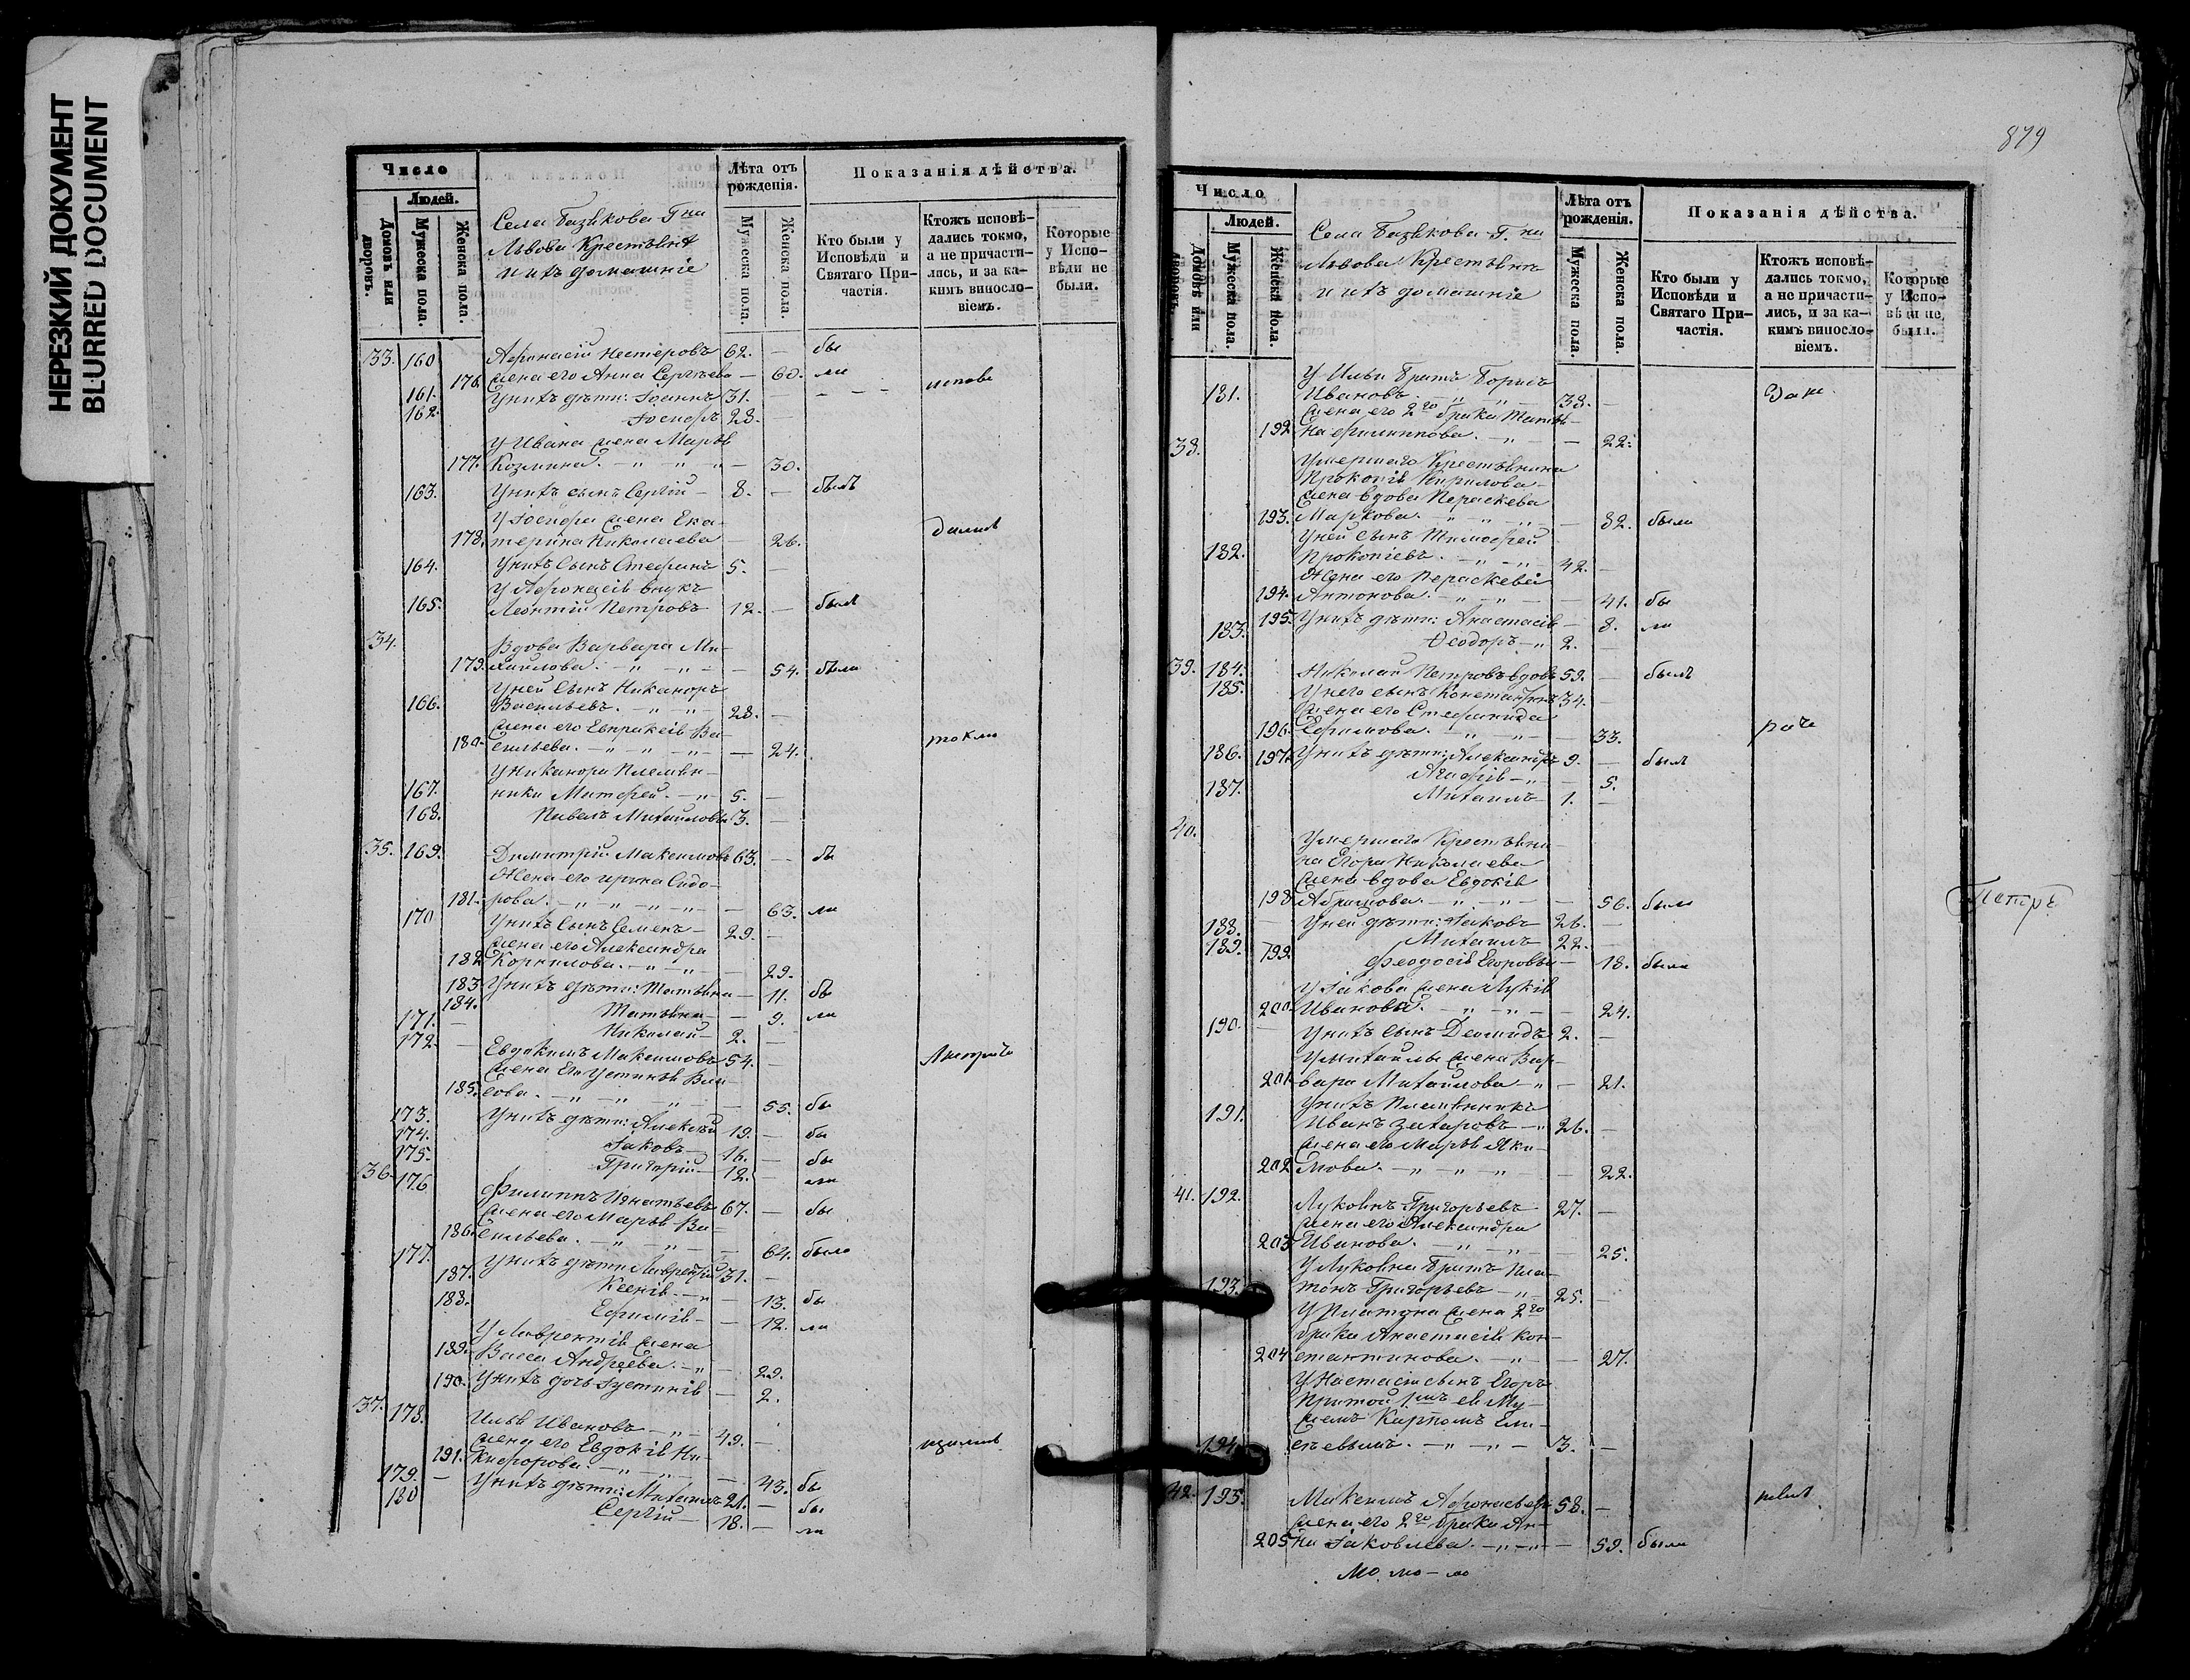 НЕРЕЗКИЙ ДОКУМЕНТ
BLURRED DOCUMENT
Число
Людей.
Домовъ или дворовъ.
Мужеска пола.
Женска пола.
Села Базѣкова Г на
Львова Крестьянѣ
и ихъ домашніе
Лѣта отъ рожденія.
Мужеска пола.
Женска пола.
Показанія дѣйства.
Кто были у Исповѣди и Святаго Причастія.
Ктожъ исповѣдались токмо, а не причастились, и за какимъ винословіемъ.
Которые у Исповѣди не были.
33. 160 Афонасій Нестеровъ 62. — бы
176. жена его Анна Сергѣева — 60. ли
161. У нихъ дѣти: Іоаннъ 31. — испове
162. Іосифъ 28. —
У Ивана жена Марья
177. Козмина — 30.
163. У нихъ сынъ Сергій — 8. — былъ
У Іосифа жена Ека-
178. терина Николаева — 26. дались
164. У нихъ Сынъ Стефанъ 5. —
У Афонасія внукъ
165. Леонтій Петровъ 12. — былъ
34. Вдова Варвара Ми-
179. хаилова — 54. была
У ней Сынъ Никаноръ
166. Васильевъ 28. —
жена его Евпраксія Ва-
180. сильева — 24. токмо
У Никанора племян-
167. ники Матфей 5. —
168. Павелъ Михаиловы 3. —
35. 169. Димитрій Максимовъ 63. — бы
Жена его Ирина Сидо-
181. рова — 63. ли
170 У нихъ Сынъ Семенъ 29. —
жена его Александра
182 Корнилова — 29.
183 У нихъ дѣти: Татьяна — 11. бы
184. Татьяна — 9. ли
171. Николай 2. —
172. Евдокимъ Максимовъ 54. —
жена его Устинья Вла-
185. сова — 55. бы
173. У нихъ дѣти: Алексѣй 19. — бы
174. Іаковъ 16. — бы
175. Григорій 12. — ли
36. 176 Филиппъ Игнатьевъ 67. — бы
жена его Марья Ва-
186. сильева — 64. была
177. У нихъ дѣти Лаврентій 31. —
187. Ксенія — 13. бы
188. Ефимія — 12. ли
У Лаврентія жена
189. Васса Андреева — 29.
190. У нихъ дочь Іустинія — 2.
37. 178. Илья Ивановъ 49. —
жена его Евдокія Ни-
191. кифорова — 43. бы
179. У нихъ дѣти: Михаилъ 21. — бы
180 Сергій 18. — ли
879
Число
Людей.
Домовъ или дворовъ.
Мужеска пола.
Женска пола.
Села Базѣкова Г. на
Львова Крестьянъ
и ихъ домашніе
Лѣта отъ рожденія.
Мужеска пола.
Женска пола.
Показанія дѣйства.
Кто были у Исповѣди и Святаго Причастія.
Ктожъ исповѣдались токмо, а не причастились, и за какимъ винословіемъ.
Которые у Исповѣди не были.
У Ильи братъ Борисъ
181. Ивановъ 38. —
жена его 2го брака Татья-
192 на Филиппова — 22.
38. Умершаго Крестьянина
Прокопія Кирилова
жена вдова Параскева
193. Маркова — 82. была
У ней Сынъ Тимофей
182. Прокопіевъ 42. —
Жена его Параскевія
194. Антонова — 41. бы
195. У нихъ дѣти: Анастасія — 8. ли
183. Ѳеодоръ 2. —
39. 184. Николай Петровъ вдовъ 59. — былъ
185. У него сынъ Константинъ 34. —
жена его Стефанида
196. Ефимова — 33.
186. 197. У нихъ дѣти: Александръ 9. — былъ
Агафія — 5.
187. Михаилъ 1. —
40. Умершаго Крестьяни-
на Егора Николаева
жена вдова Евдокія
198 Абрамова — 56. была
188. У ней дѣти: Іаковъ 26. —
189. Михаилъ 22. —
199. Феодосія Егоровы — 18. была
У Іакова жена Лукія
200 Иванова — 24.
190. У нихъ Сынъ Демидъ 2. —
У Михаилы жена Вар-
201. вара Михаилова — 21.
У нихъ племянникъ
191. Иванъ Захаровъ 26. —
жена его Марья Яки-
202 мова — 22.
41. 192. Лукьянъ Григорьевъ 27. —
жена его Александра
203 Иванова — 25.
У Лукьяна братъ Пла-
193. тонъ Григорьевъ 25. —
У Платона жена 2го
брака Анастасія Кон-
204 стантинова — 27.
У Настасіи сынъ Егоръ
194. 3. —
42. 195. Максимъ Афонасьевъ 58. —
жена его 2го брака Ан-
205 на Іаковлева — 59. была
Петръ